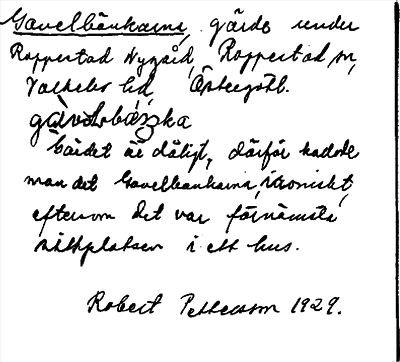 Gavelbänkarna, gärde under
Rappestad Nygård, Rappestad sn,
Valkebo hd, Östergötl.
gàvəlbáŋka
Gärdet är dåligt, därför kallade
man det Gavelbänkarna, ironiskt,
eftersom det var förnämsta
sittplatsen i ett hus.
Robert Pettersson 1929.